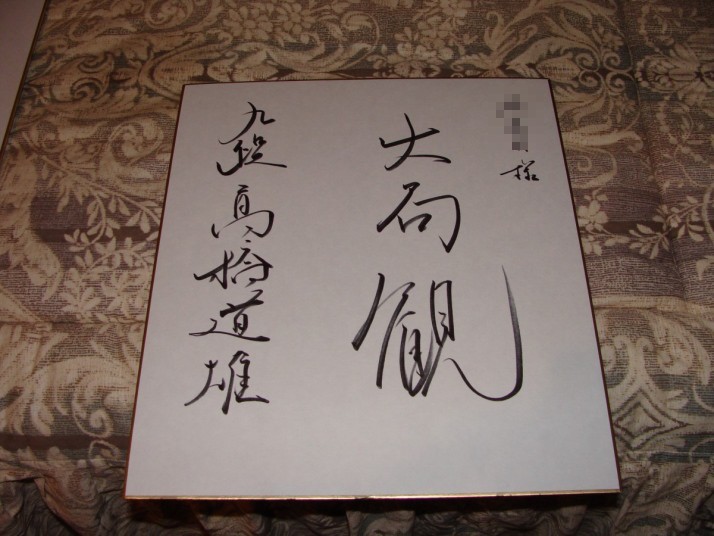 様
大局観
九段 高橋道雄